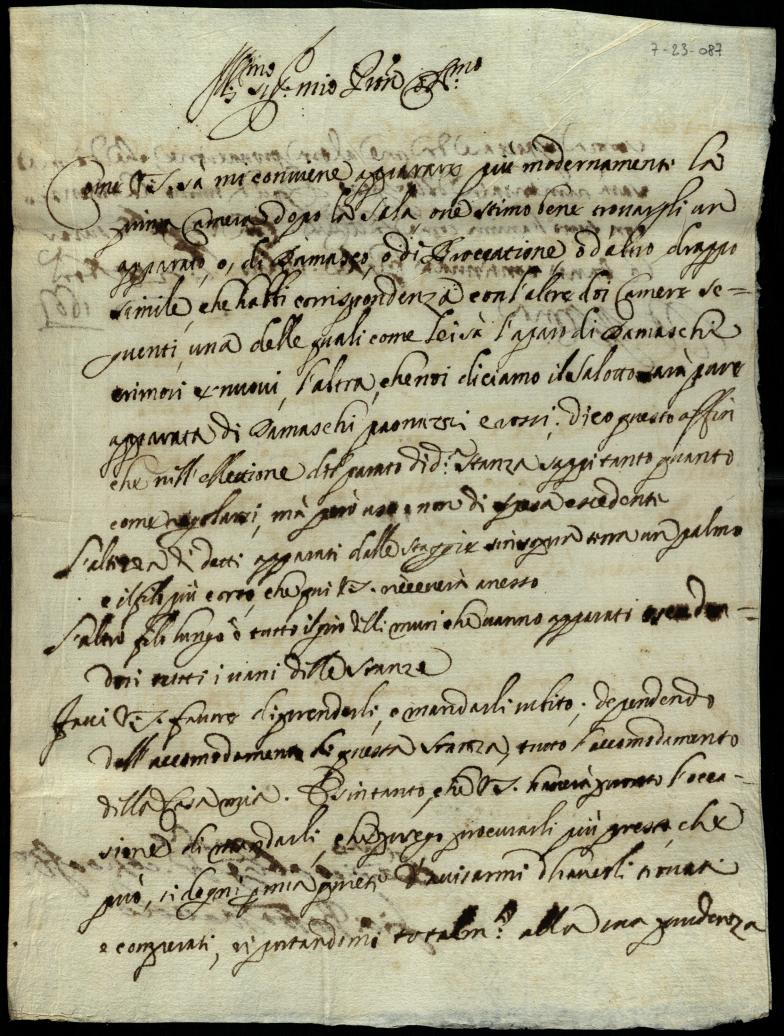 7-23-087
Ill.mo Sig.r mio P.ron Oss.mo
Come V.S. sà mi conviene apparare più modernamente la
prima Camera dopo la Sala, onde stimo bene trovargli un
apparato, o, di Damasco, o di Broccatione, o d'altro drappo
simile, che habbi corrispondenza con l'altre doi Camere se=
guenti, una delle quali come lei sà l'aparo di Damaschi
cremori et nuovi, l'altra, che noi diciamo il Salotto sarà pure
apparata di Damaschi paonazzi e rossi; dico questo affin
che nell'elletione del parato di d.a Stanza sappi tanto quanto
come regolarsi, mà però una non di spesa eccedente
L'altezza di detti apparati dalle staggie sin sopra terra un palmo
e il filo più corto, che qui V.S. riceverà anesso
L'altro filo lungo è tutto il giro delli muri che vanno apparati
dosi tutti i vani delle stanze
Facci V.S. favore di prenderli, e mandarli subito; dependendo
dall'accomodamento di questa stanza, tutto l'accomodamento
della Casa mia. E sin tanto, che V.S. haverà pronto l'occa=
sione di mandarli, che prego procurarli più presto, che
può, si degni p mia quiete d'avisarmi d'haverli trovati
e comprati, riportandomi totalm.te alla sua prudenza